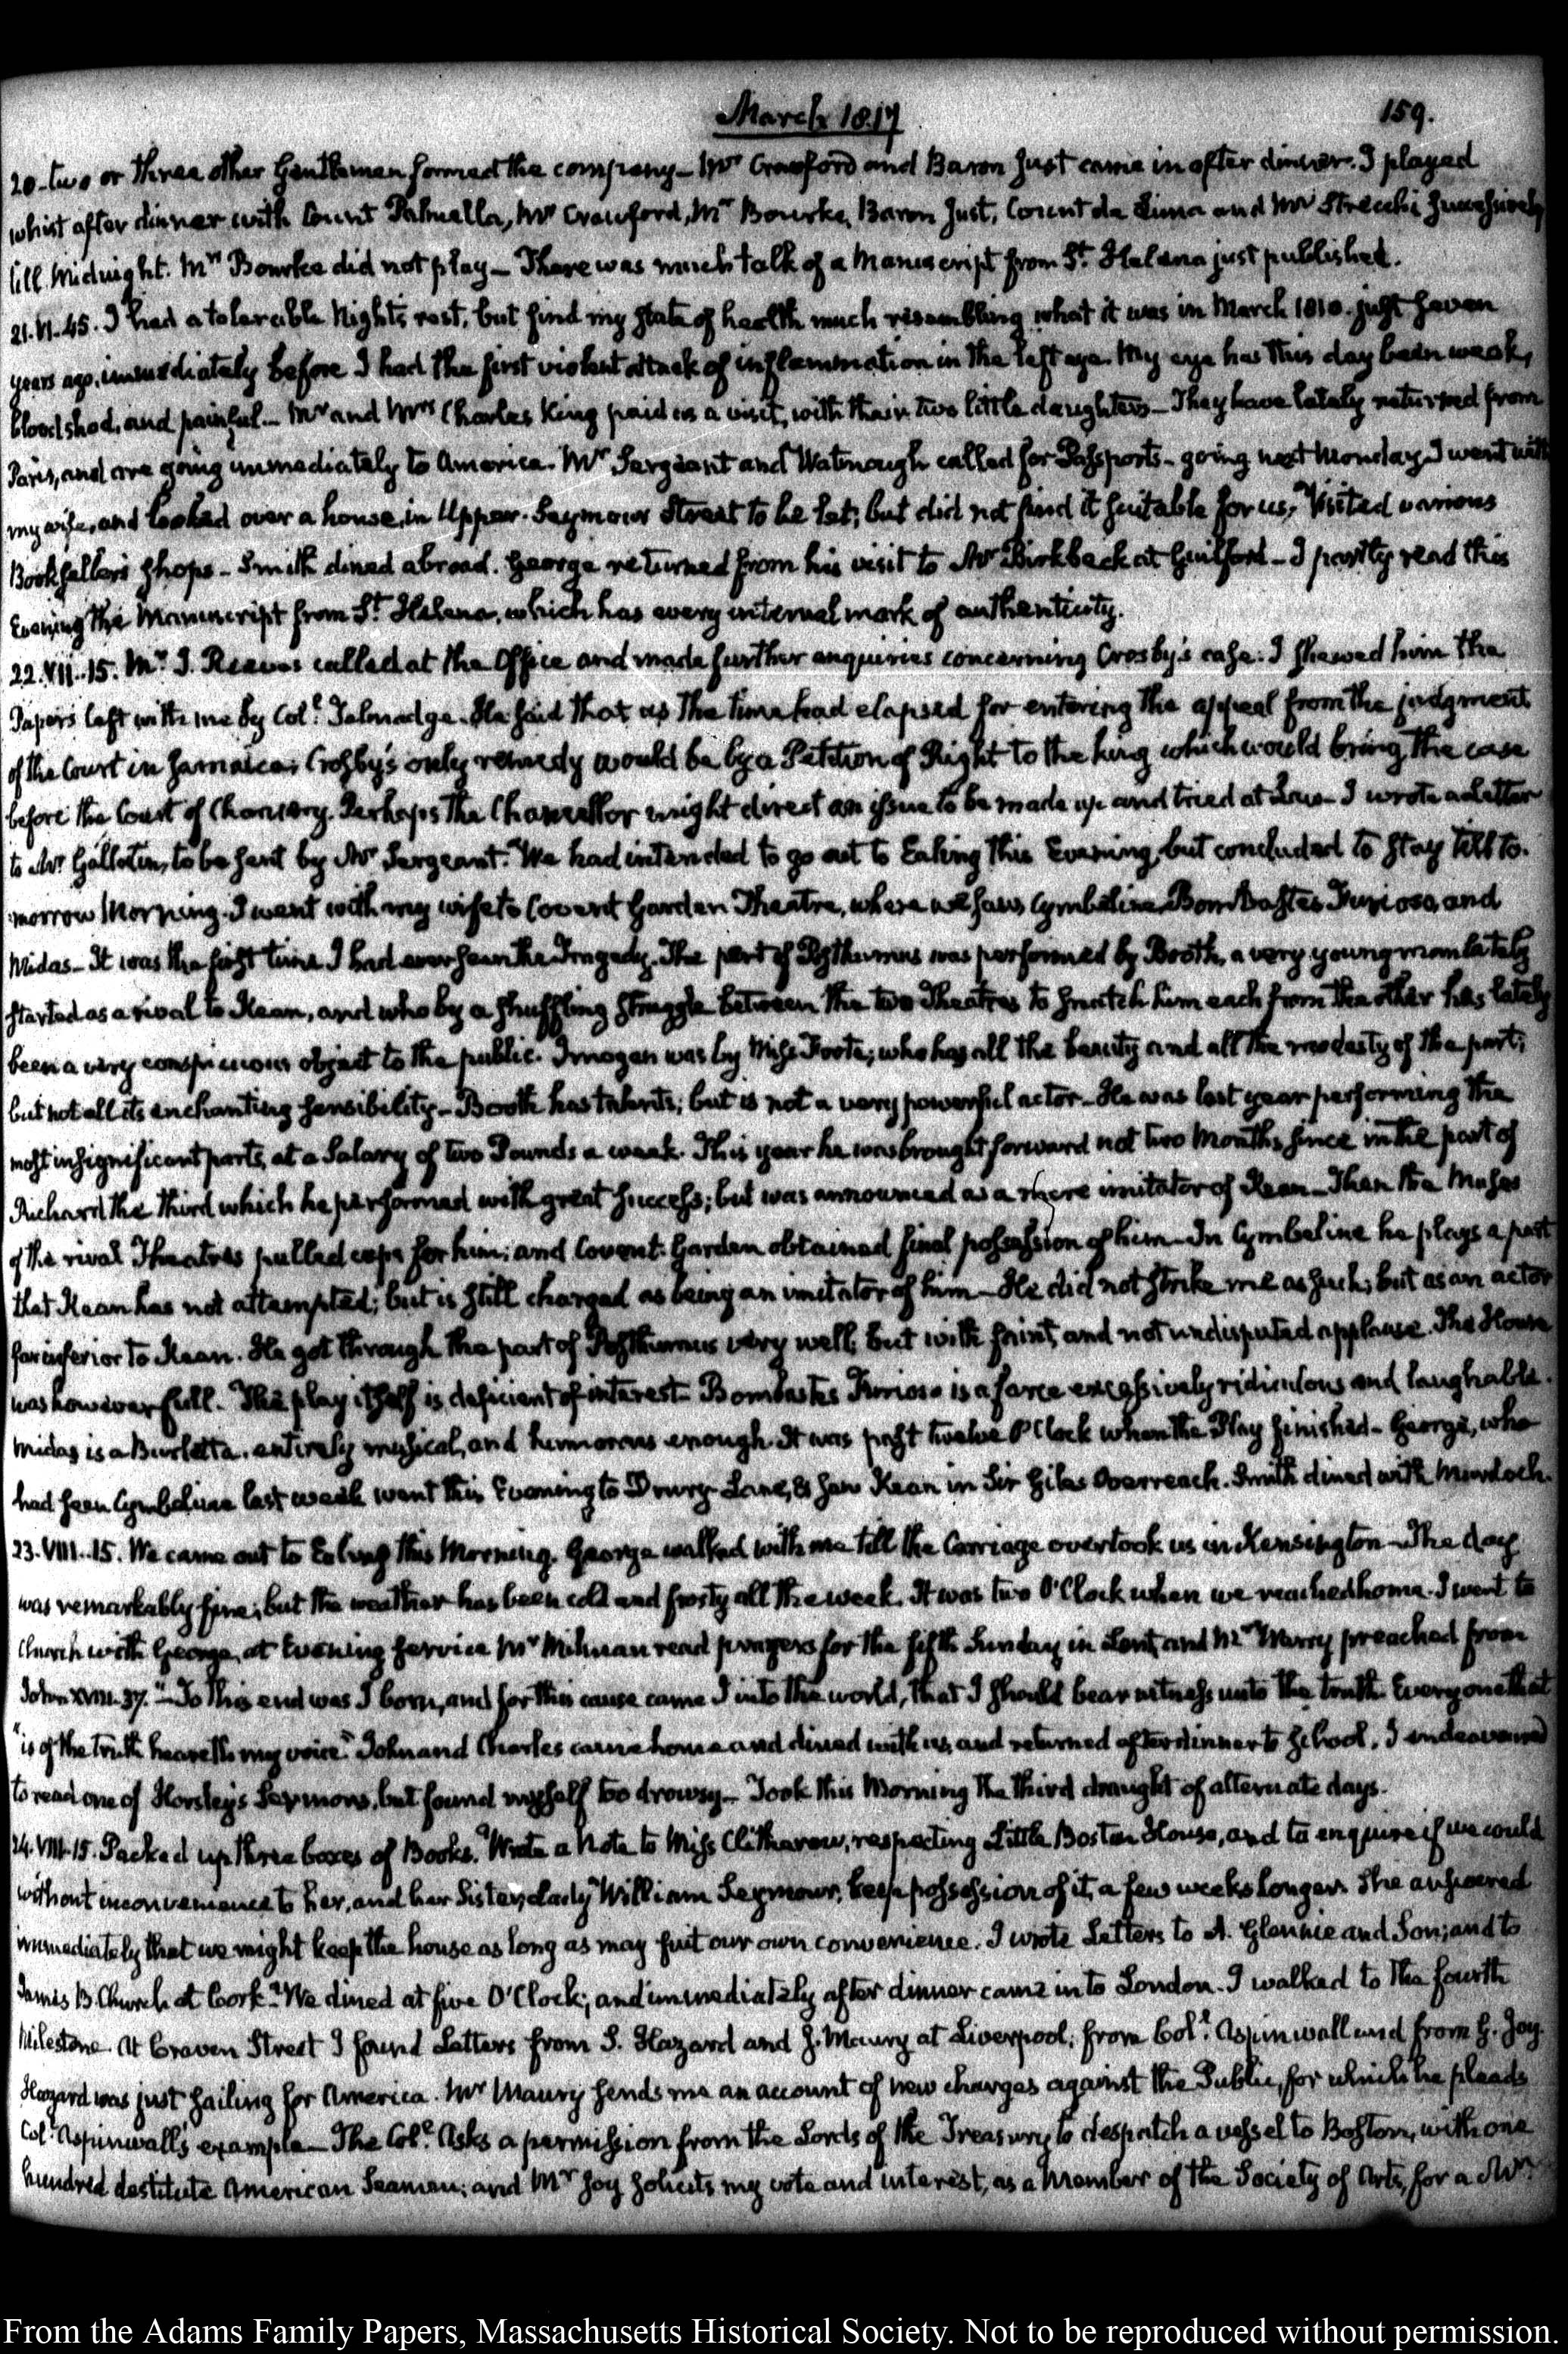 March 1817
159.
20- two or three other Gentlemen formed the company_ Mr Crawford and Baron Just came in after dinner. I played
whist after dinner with Count Palmella, Mr Crawford, Mr Bourke, Baron Just, Count da Lima and Mr Strecchi successively
till Midnight. Mrs Bourke did not play_ There was much talk of a Manuscript from St. Helena just published.
21. VI..45. I had a tolerable Night's rest, but find my state of health much resembling what it was in March 1810. just seven
years ago, immediately before I had the first violent attack of inflammation in the left eye. My eye has this day been weak,
bloodshod, and painful_ Mr and Mrs Charles King paid us a visit, with their two little daughters_ They have lately returned from
Paris, and are going immediately to America. Mr Sergeant and Watmough called for Passports_ going next Monday. I went with
my wife, and looked over a house, in Upper-Seymour Street to be let; but did not find it suitable for us. Visited various
Booksellers shops_ Smith dined abroad. George returned from his visit to Mr Birkbeck at Guilford_ I partly read this
Evening the Manuscript from St. Helena, which has every internal mark of authenticity.
22. VII..15. Mr J. Reeves called at the Office and made further enquiries concerning Crosby's case. I shewed him the
Papers left with me by Coll. Talmadge. He said that as the time had elapsed for entering the appeal from the judgment
of the Court in Jamaica; Crosby's only remedy would be by a Petition of Right to the king which would bring the case
before the Court of Chancery. Perhaps the Chancellor might direct an issue to be made up and tried at Law_ I wrote a Letter
to Mr Gallatin, to be sent by Mr Sergeant. We had intended to go out to Ealing this Evening, but concluded to stay till to-
morrow Morning. I went with my wife to Covent Garden Theatre, where we saw Cymbeline, Bombastes Furioso, and
Midas_ It was the first time I had ever seen the Tragedy. The part of Posthumus was performed by Booth, a very young man lately
started as a rival to Kean, and who by a shuffling struggle between the two Theatres to snatch him each from the other has lately
been a very conspicuous object to the public. Imogen was by Miss Foote; who has all the beauty and all the modesty of the part;
but not all its enchanting sensibility_ Booth has talents; but is not a very powerful actor_ He was last year performing the
most insignificant parts, at a Salary of two Pounds a week. This year he was brought forward not two Months since in the part of
Richard the third which he performed with great success; but was announced as a mere imitator of Kean_ Then the Muses
of the rival Theatres pulled caps for him; and Covent-Garden obtained final possession of him_ In Cymbeline he plays a part
that Kean has not attempted; but is still charged as being an imitator of him_ He did not strike me as such; but as an actor
far inferior to Kean. He got through the part of Posthumus very well; but with faint, and not undisputed applause. The House
was however full. The play itself is deficient of interest_ Bombastes Furioso is a farce excessively ridiculous and laughable.
Midas is a Burletta. entirely musical, and humorous enough. It was past twelve O'Clock when the Play finished_ George, who
had seen Cymbeline last week went this Evening to Drury-Lane, & saw Kean in Sir Giles Overreach. Smith dined with Murdoch.
23. VIII..15. We came out to Ealing this Morning. George walked with me till the Carriage overtook us in Kensington_ The day
was remarkably fine; but the weather has been cold and frosty all the week. It was two O'Clock when we reached home. I went to
Church with George, at Evening service Mr Milman read prayers for the fifth Sunday in Lent, and Mr Warry preached from
John XVIII. 37. "_To this end was I born, and for this cause came I into the world, that I should bear witness unto the truth. Every one that
"is of the truth heareth my voice." John and Charles came home and dined with us, and returned after dinner to School. I endeavoured
to read one of Horsley's Sermons, but found myself too drowsy_ Took this Morning the third draught of alternate days.
24. VIII..15. Packed up three boxes of Books. Wrote a Note to Miss Clitherow, respecting Little Boston House, and to enquire if we could
without inconvenience to her, and her Sister, Lady William Seymour, keep possession of it, a few weeks longer. She answered
immediately that we might keep the house as long as may suit our own convenience. I wrote Letters to A. Glennie and Son; and to
James B. Church at Cork. We dined at five O'Clock; and immediately after dinner came in to London. I walked to the fourth
Milestone. At Craven Street I found Letters from S. Hazard and J. Maury at Liverpool; from Coll. Aspinwall and from G. Joy.
Hazard was just sailing for America. Mr Maury sends me an account of new charges against the Public, for which he pleads
Coll. Aspinwall's example_ The Coll. asks a permission from the Lords of the Treasury to despatch a vessel to Boston, with one
hundred destitute American Seamen; and Mr Joy solicits my vote and interest, as a Member of the Society of Arts, for a Mr
From the Adams Family Papers, Massachusetts Historical Society. Not to be reproduced without permission.